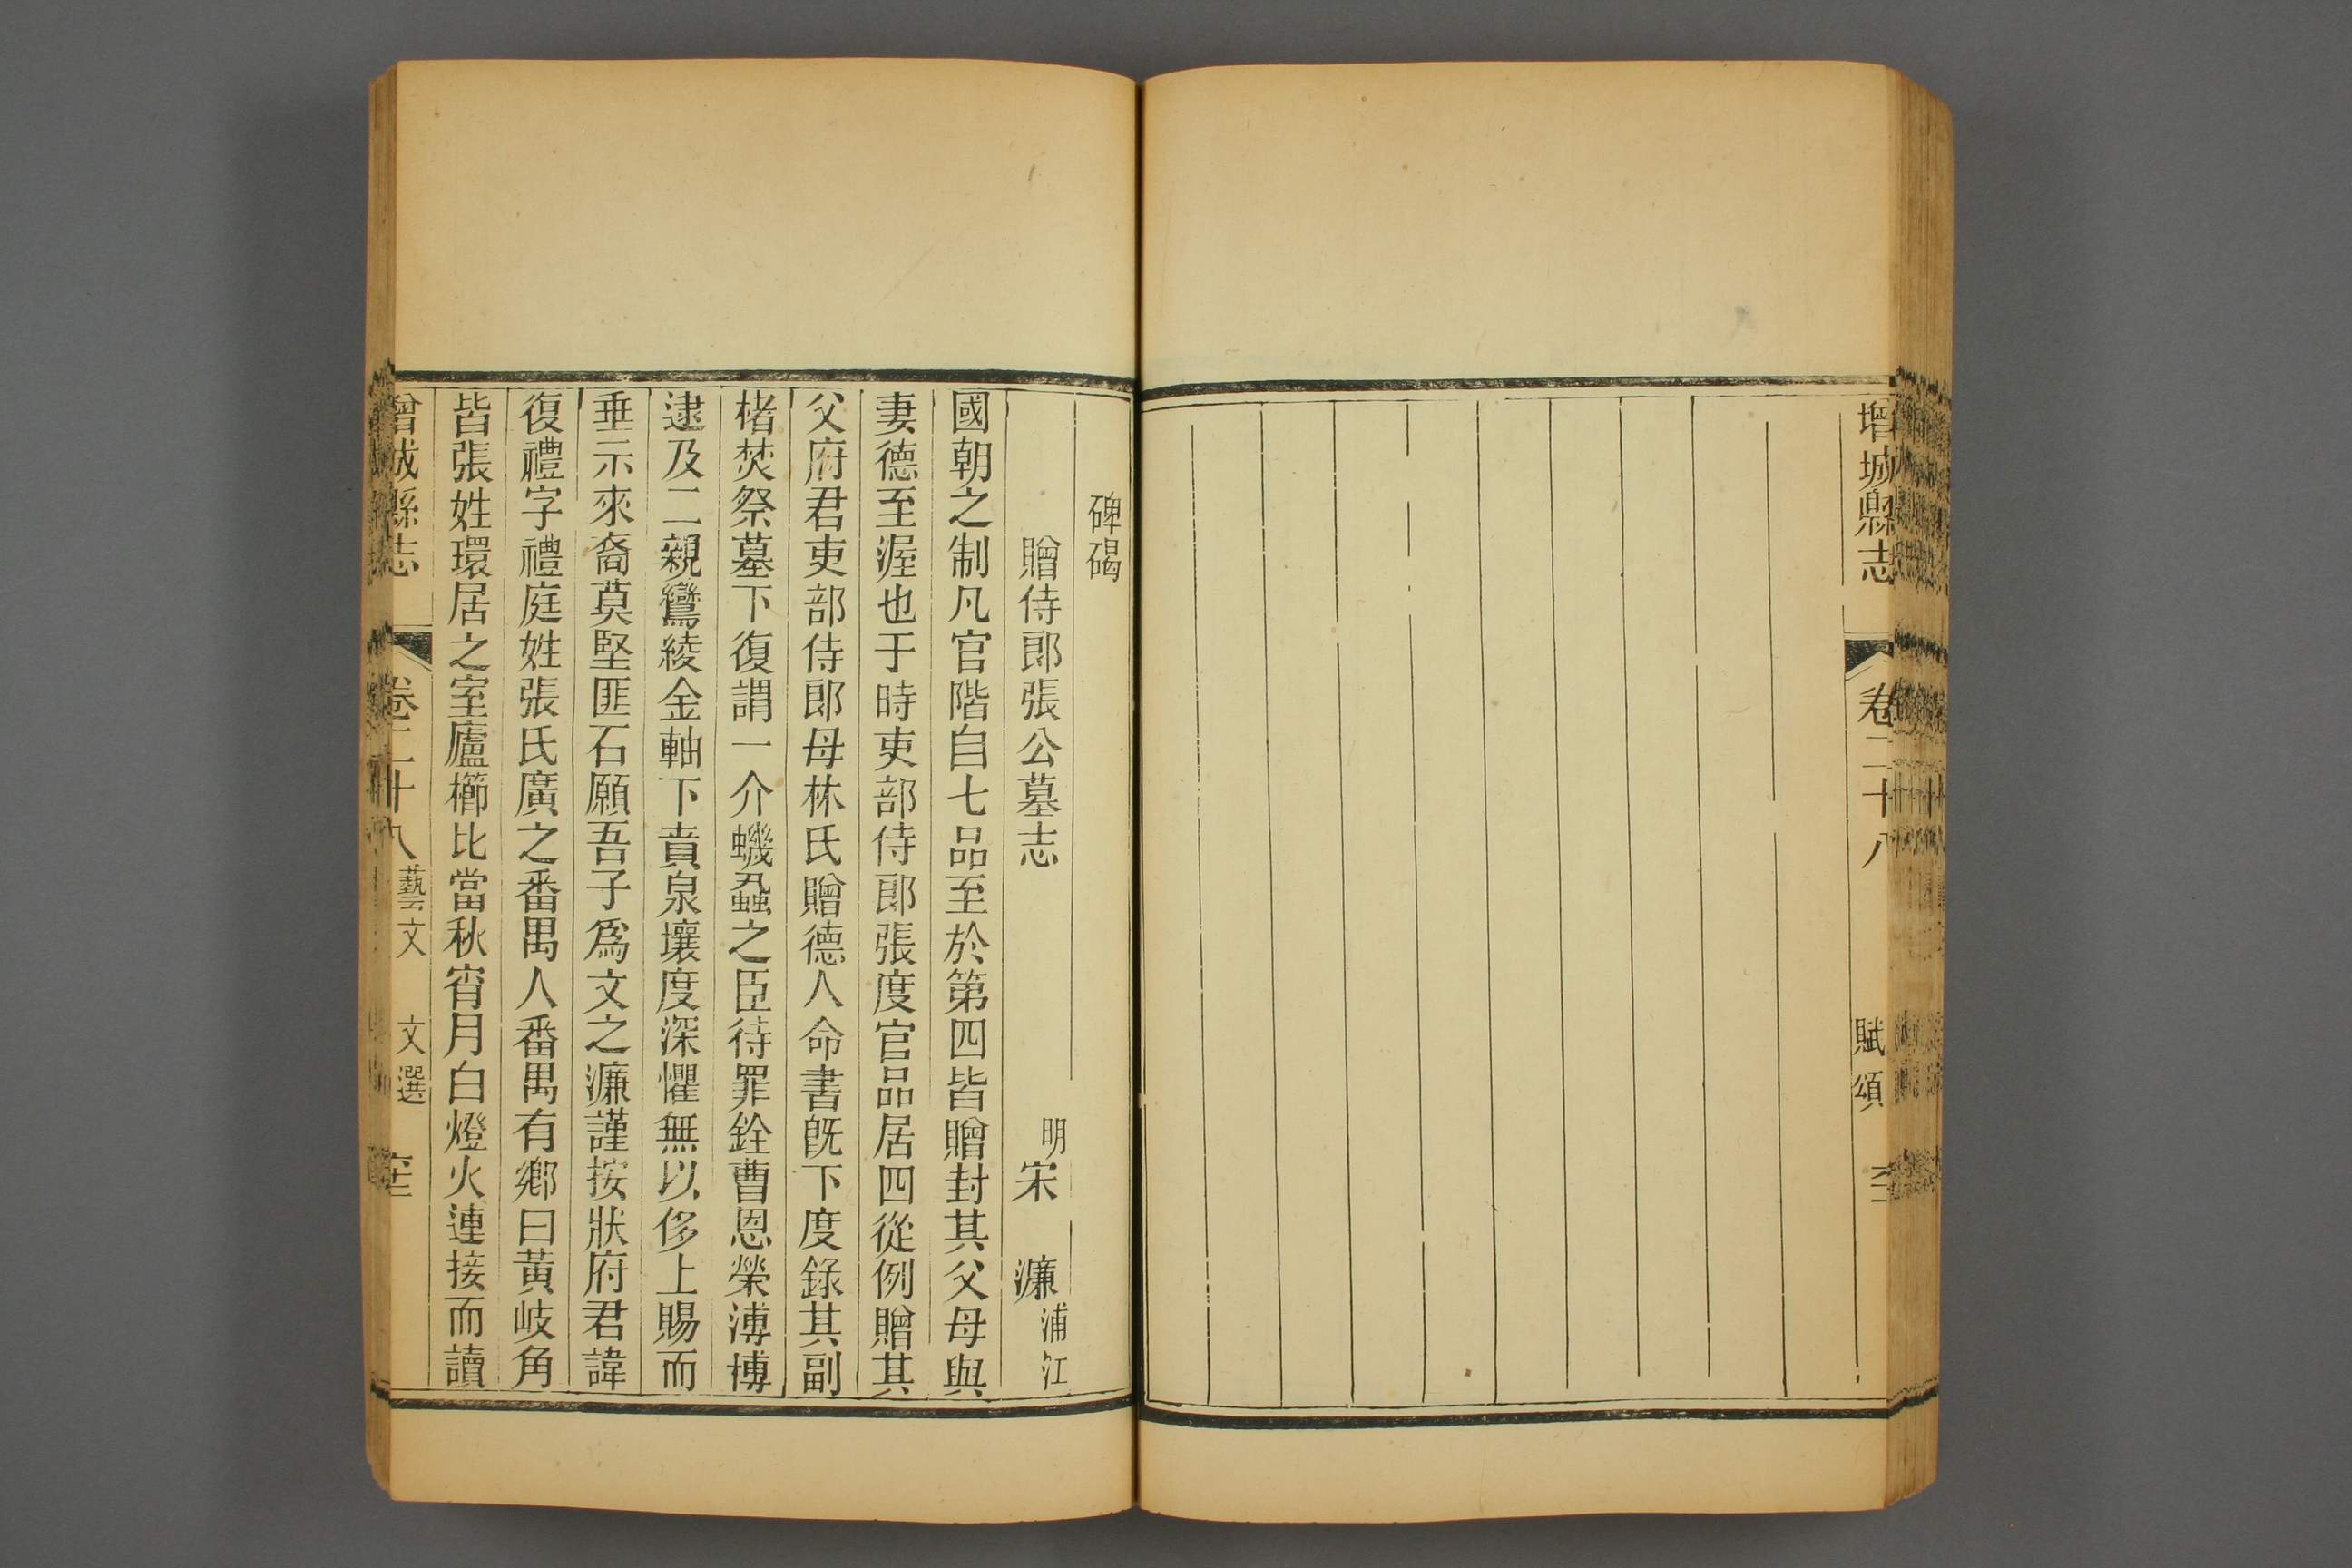 增城縣志 卷二十八 賦頌 六二
碑碣
贈侍郎張公墓志 明宋濂浦江
國朝之制凡官階自七品至於第四皆贈封其父母與
妻德至渥也于時吏部侍郎張度官品居四從例贈其
父府君吏部侍郎母林氏贈德人命書旣下度錄其副
楮焚祭墓下復謂一介蟣蝨之臣待罪銓曹恩榮溥博
逮及二親鸞綾金軸下賁泉壤度深懼無以侈上賜而
垂示來裔莫堅匪石願吾子爲文之濂謹按狀府君諱
復禮字禮庭姓張氏廣之番禺人番禺有鄉曰黃岐角
皆張姓環居之室廬櫛比當秋宵月白燈火連接而讀
增城縣志 卷二十八 藝文 文選